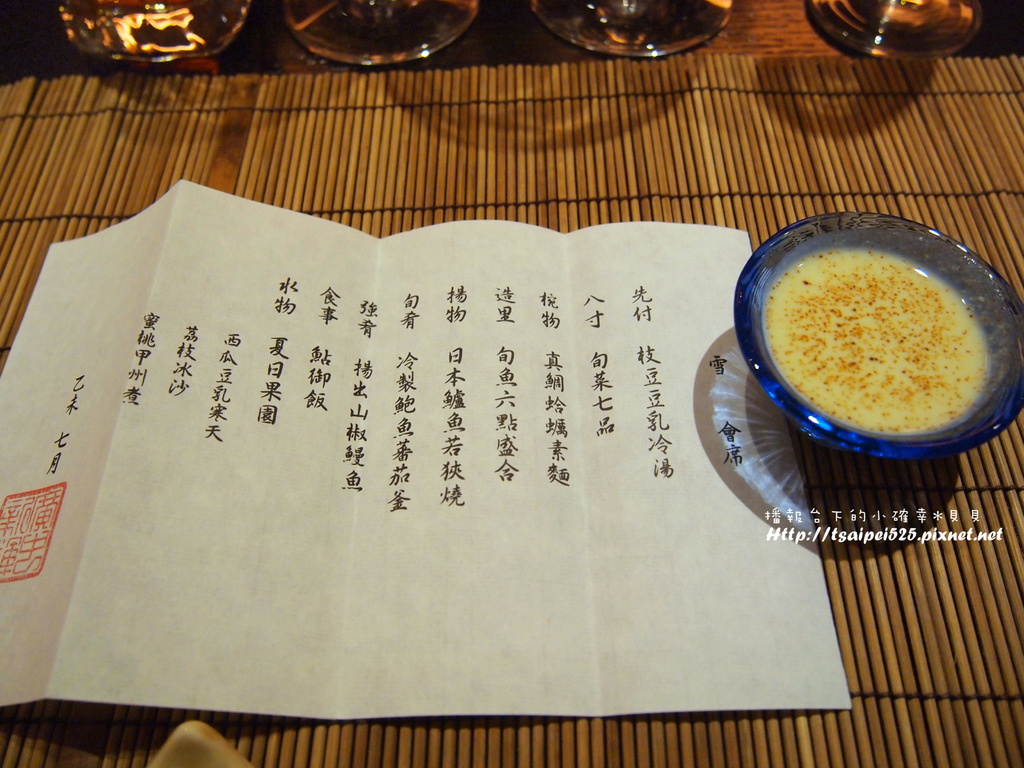 雪 會席
先付 枝豆豆乳冷湯
八寸 旬菜七品
椀物 真鯛蛤蠣素麵
造里 旬魚六點盛合
揚物 日本鱸魚若狹燒
旬肴 冷製鮑魚蕃茄釜
強肴 揚出山椒鰻魚
食事 鮎御飯
水物 夏日果園
西瓜豆乳寒天
荔枝冰沙
蜜桃甲州煮
乙未 七月
播報台下的小確幸*貝貝
Http://tsaipei525.pixnet.net